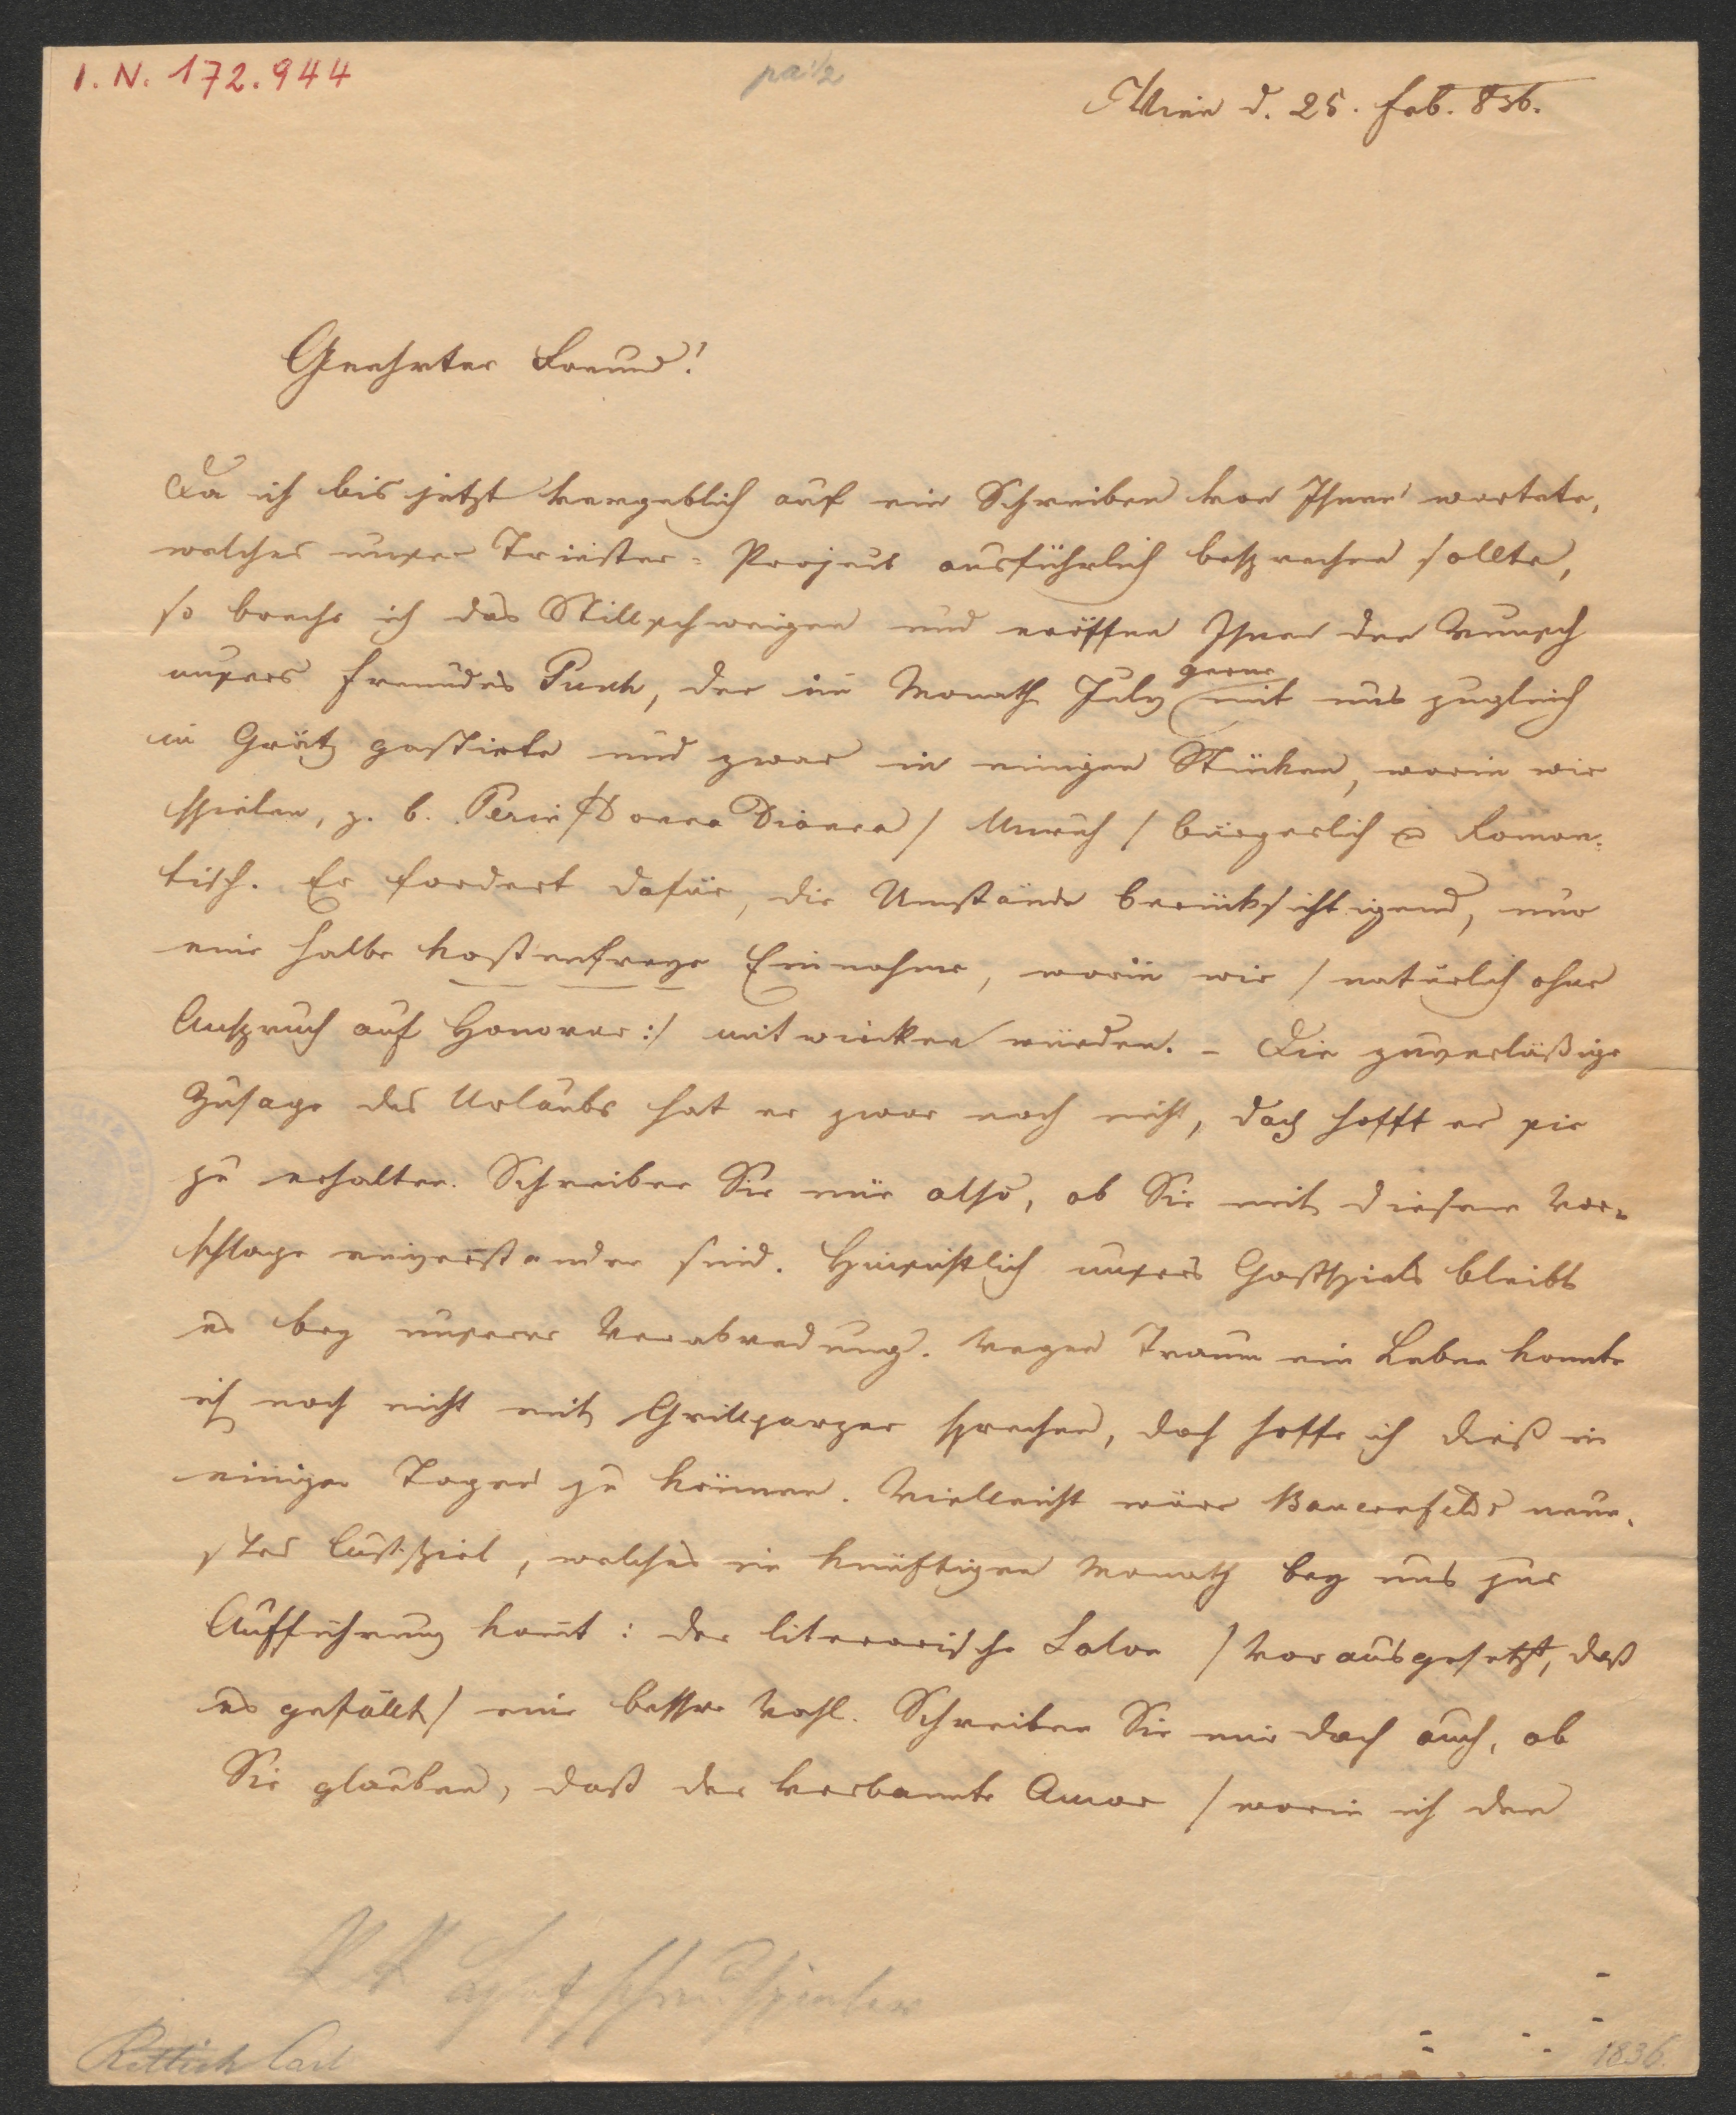 I. N. 172.944
Wien d. 25. Feb. 836.
Geehrter Freund!
Da ich bis jetzt vergeblich auf ein Schreiben von Ihnen wartete,
welches unser Triester-Project ausführlich besprechen sollte,
so breche ich das Stillschweigen und eröffne Ihnen den Wunsch
unsers Freundes , der im Monath July gerne mit uns zugleich
in Grätz gastirte und zwar in einigen Stücken, worin wir
spielen, z. b. Perin /Donna Diana/ / bürgerlich u Roman-
tisch. Er fordert dafür, die Umstände berücksichtigend, nur
eine halbe kostenfreye Einnahme, worin wir /natürlich ohne
Anspruch auf Honorar:/ mitwirken würden. – Die zuverläßige
Zusage des Urlaubs hat er zwar noch nicht, doch hofft er sie
zu erhalten. Schreiben Sie mir also, ob Sie mit diesem Vor-
schlage einverstanden sind. Hinsichtlich unsers Gastspiels bleibt
es bey unserer Verabredung. Wegen Traum ein Leben konnte
ich noch nicht mit Grillparzer sprechen, doch hoffe ich dieß in
einigen Tagen zu können. Vielleicht wäre Bauernfelds neue-
stes Lustspiel, welches im künftigen Monath bey uns zur
Aufführung kom̄t: der literarische Salon /vorausgesetzt, daß
es gefällt/ eine bessre Wahl. Schreiben Sie mir doch auch, ob
Sie glauben, daß der verbannte Amor /worin ich den
K K Hofschauspieler
Rettich Carl
1836.